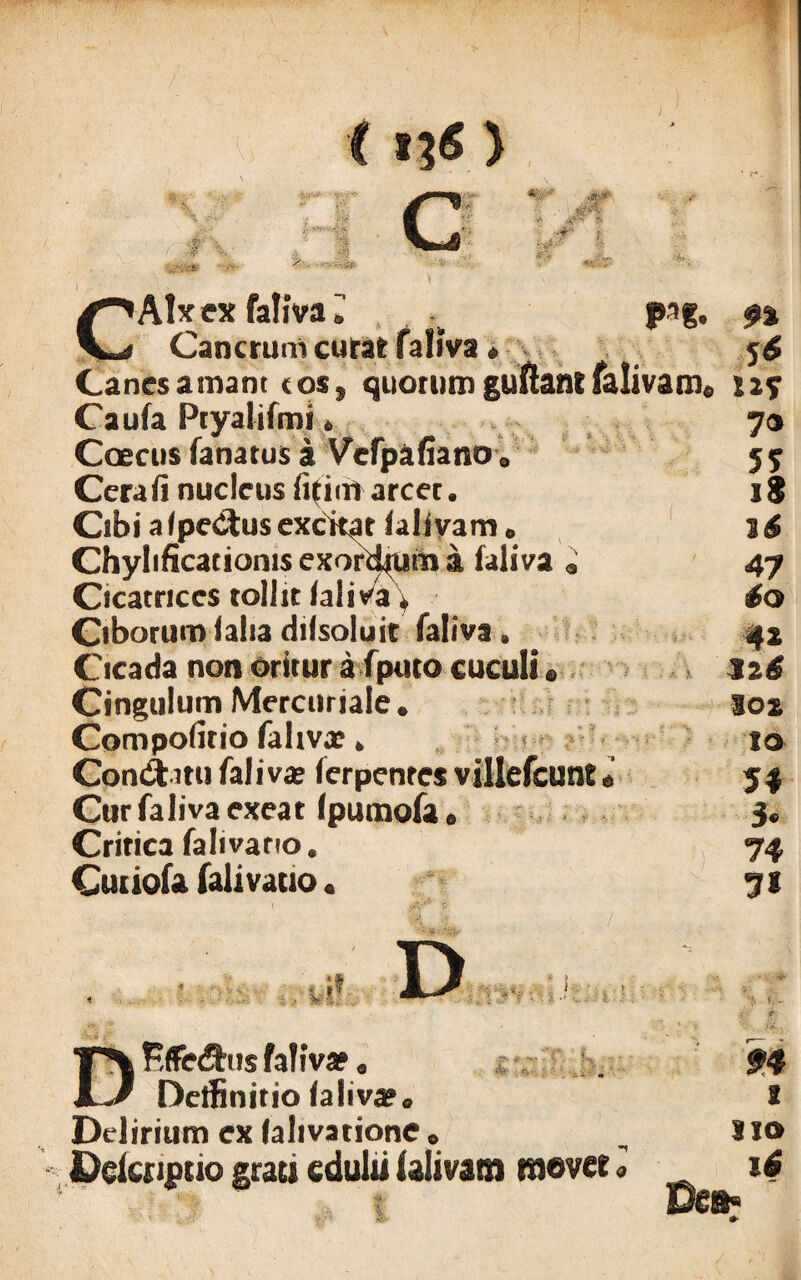 ( 136 )
C
CAlx ex faliva. pag. 92
Cancrum curat faliva. 56
Canes amant eos, quorum guftant falivam. 125
Caufa Ptyalifmi. 70
Cœcus fanatus à Vefpafiano. 55
Cerafi nucleus fitim arcet. 18
Cibi afpectus excitat falivam. 16
Chylificationis exordium à faliva. 47
Cicatrices tollit faliva. 60
Ciborum falia difsoluit faliva. 42
Cicada non oritur à fputo cuculi. 126
Cingulum Mercuriale. 102
Compofitio falivæ. 10
Conctatu falivæ ferpentes villefcunt. 54
Cur faliva exeat fpumofa. 3.
Critica falivatio. 74
Cutiofa falivatio. 71
D
DEffectus falivæ. 94
Deffinitio falivæ. 1
Delirium ex falivatione. 110
Defcriptio grati edulii falivam movet. 16